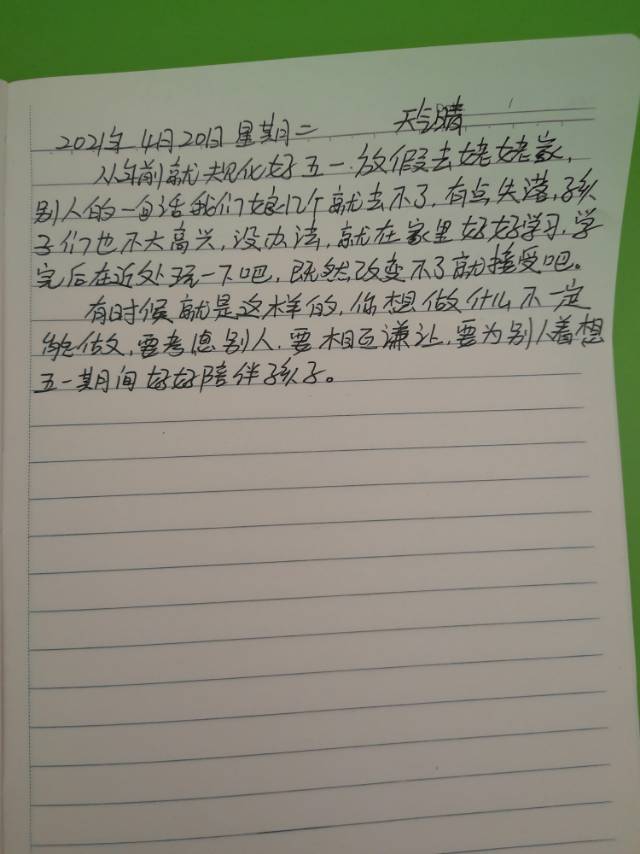 2021年4月20日星期二 天气晴
从年前就规化好五一放假去姥姥家,
别人的一句话我们娘几个就去不了,有点失落,孩
子们也不大高兴,没办法,就在家里好好学习,学
完后在近处玩一下吧,既然改变不了就接受吧。
有时候就是这样的,你想做什么不一定
能做,要考虑别人,要相互谦让,要为别人着想
五一期间好好陪伴孩子。